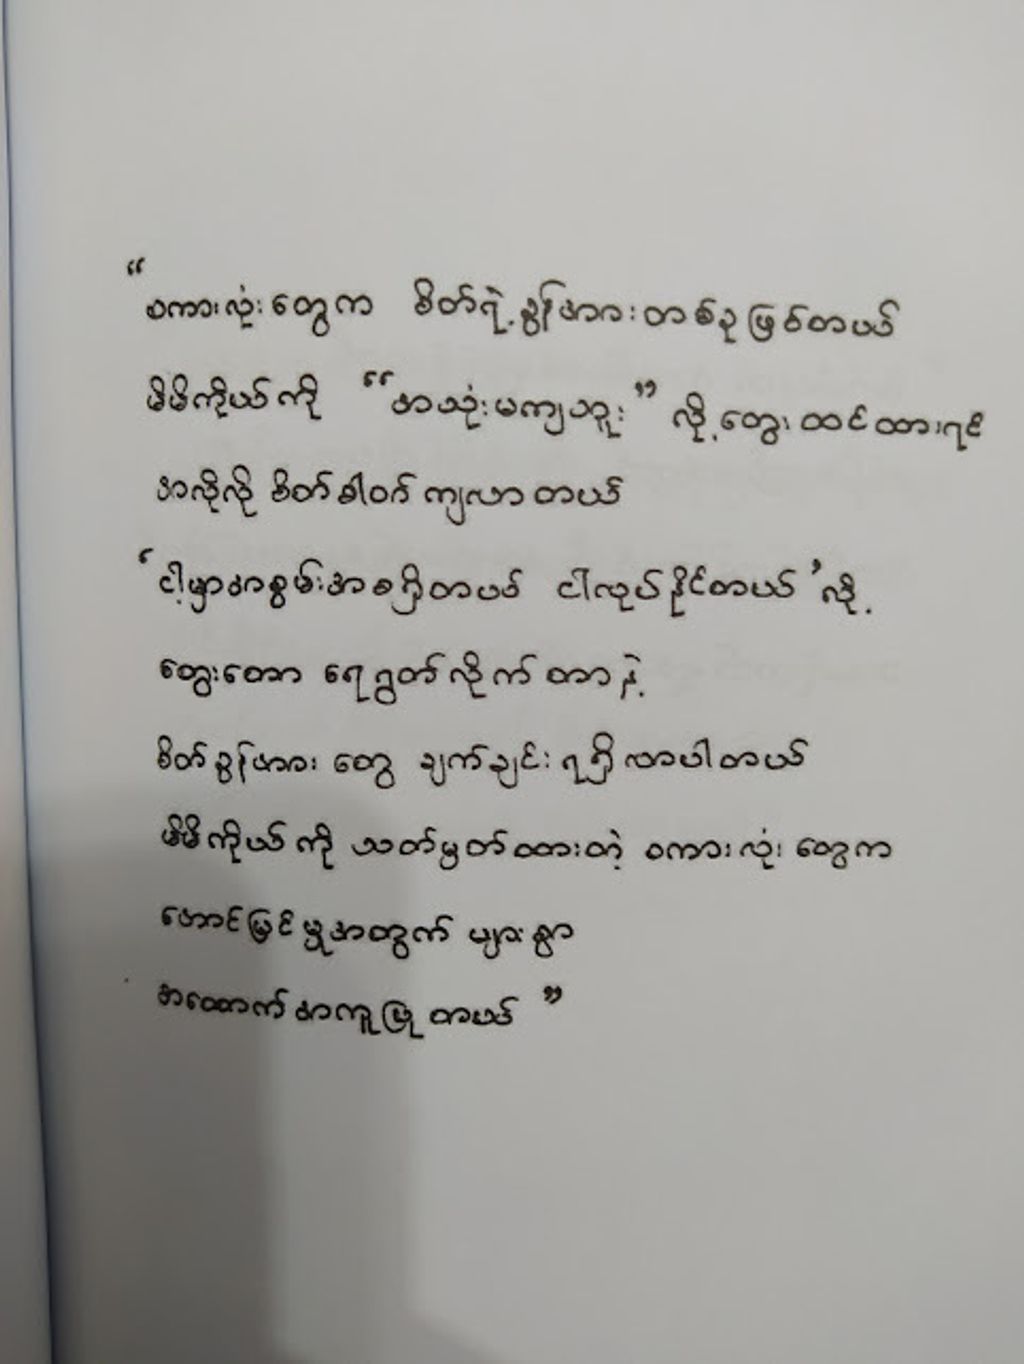 “စကားလုံးတွေက စိတ်ရဲ့ခွန်အားတစ်ခုဖြစ်တယ်
မိမိကိုယ်ကို “အသုံးမကျဘူး” လို့တွေးထင်ထားရင်
အလိုလို စိတ်ဓါတ် ကျလာတယ်
‘ငါ့မှာအစွမ်းအစရှိတယ် ငါလုပ်နိုင်တယ်’လို့
တွေးတော ရေရွတ်လိုက်တာနဲ့
စိတ်ခွန်အားတွေ ချက်ချင်းရရှိလာပါတယ်
မိမိကိုယ်ကို သတ်မှတ်ထားတဲ့ စကားလုံးတွေက
အောင်မြင်မှုအတွက် များစွာ
အထောက်အကူပြုတယ်”